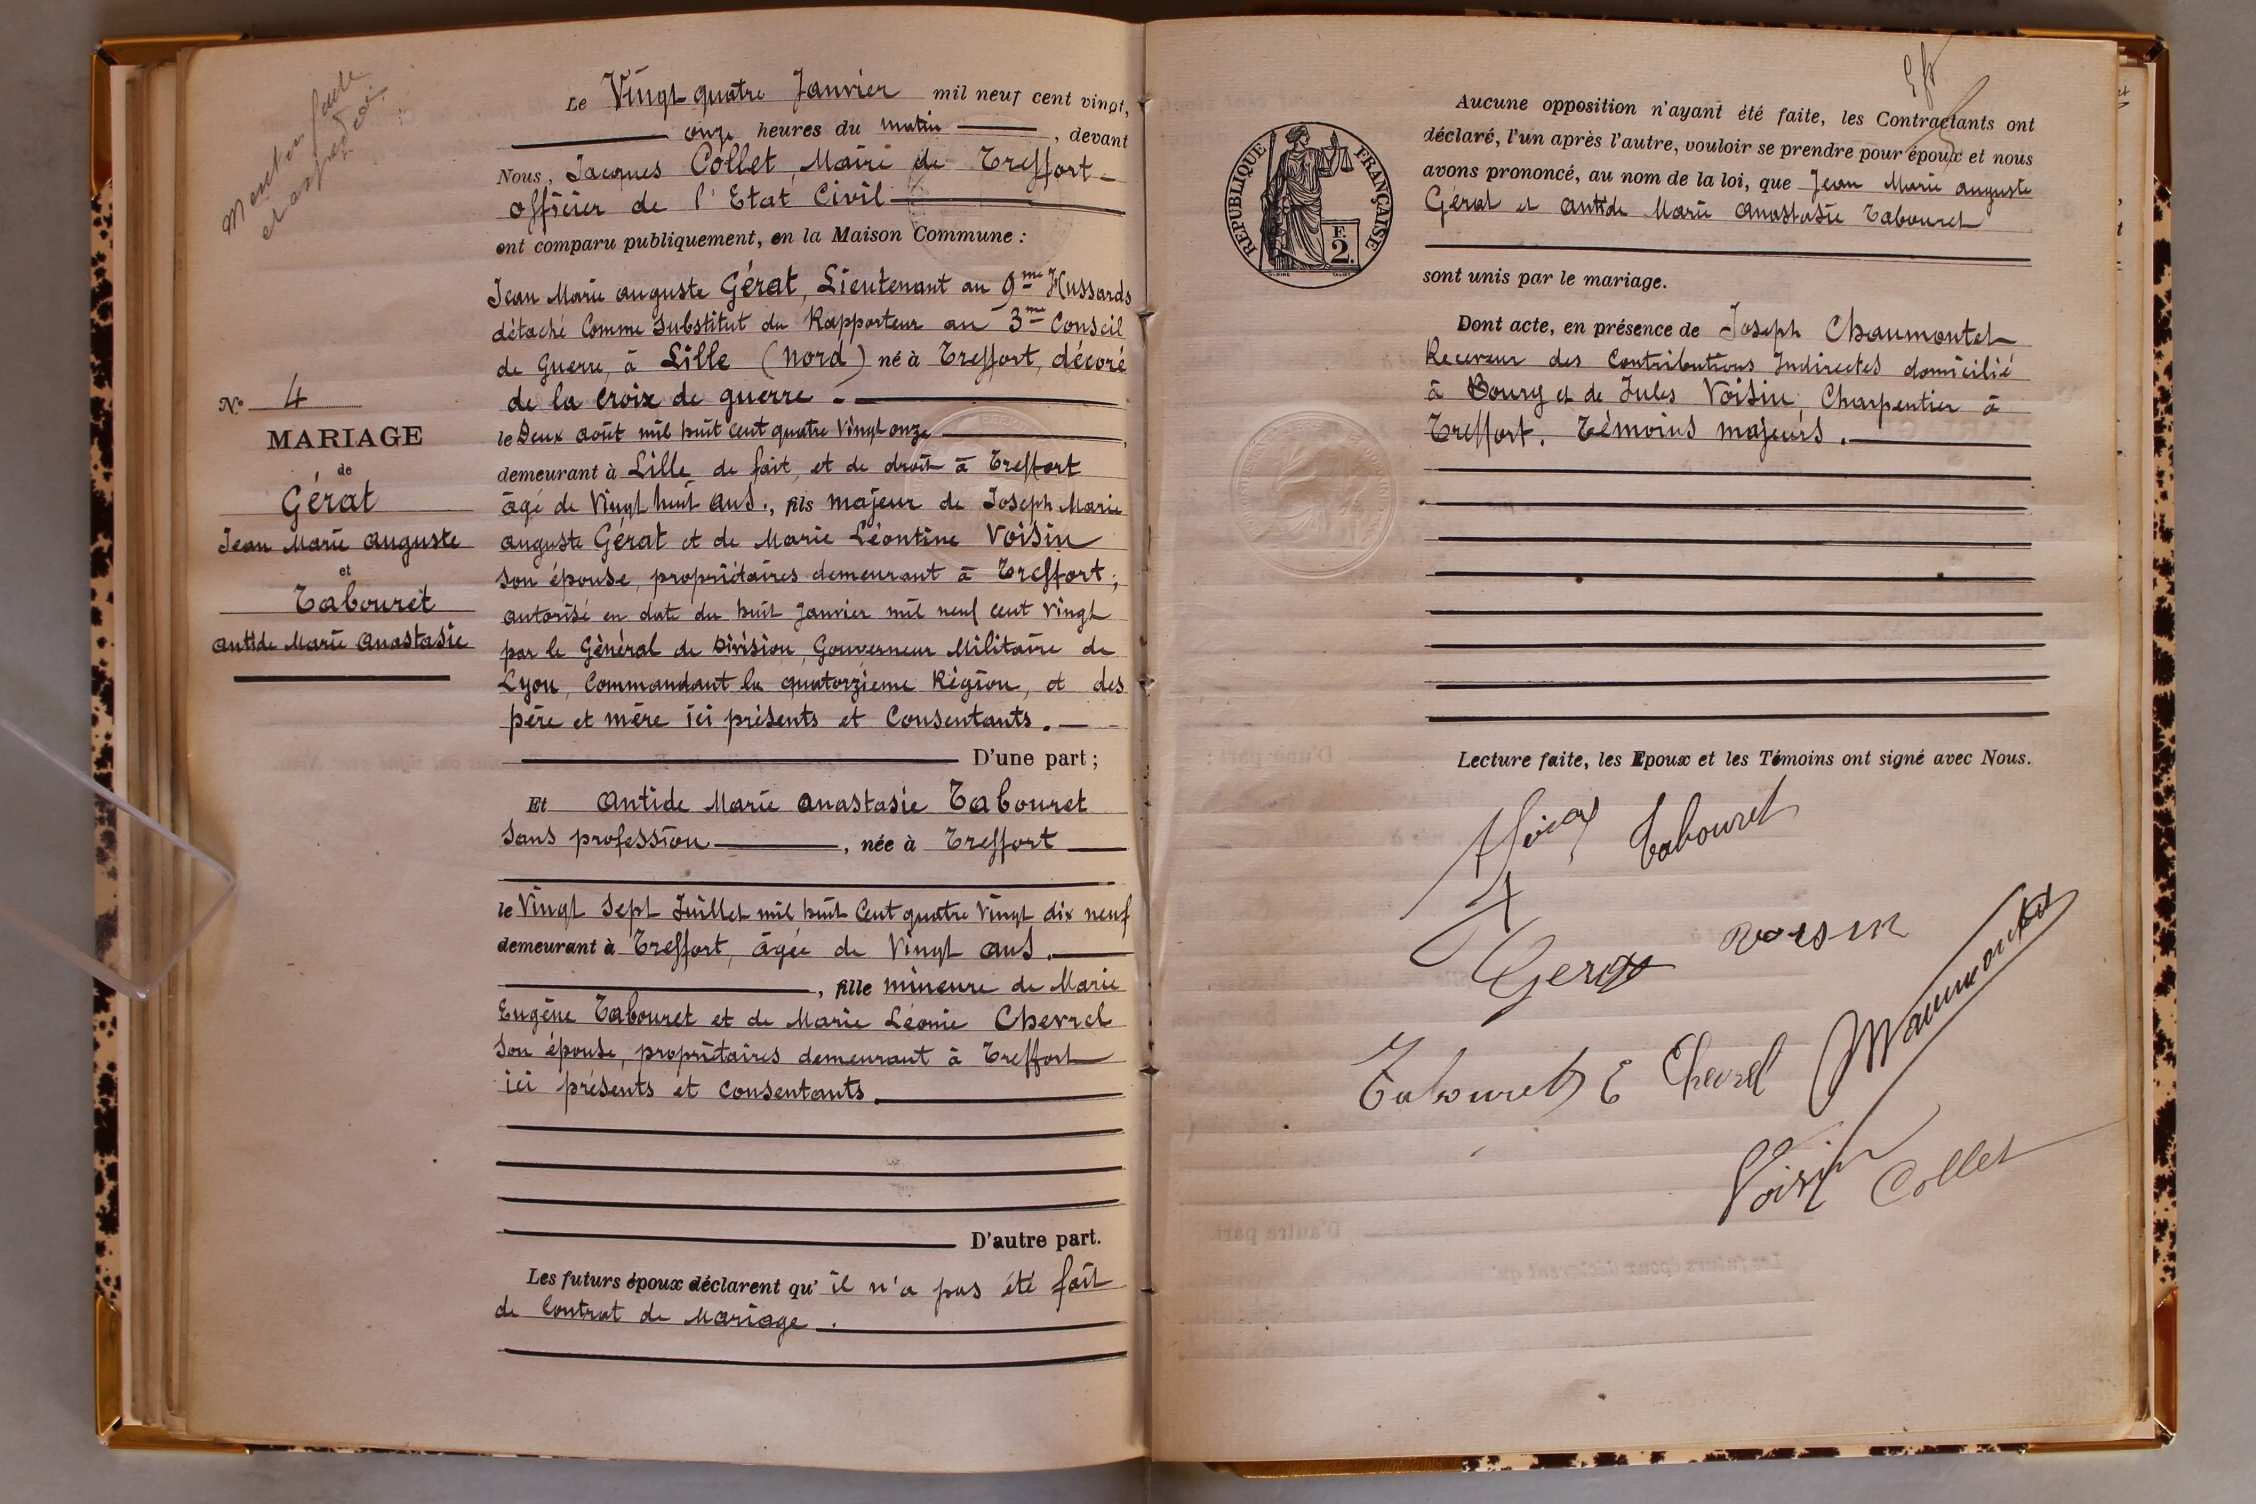 Mention faite
et
Le Vingt quatre Janvier mil neuf cent vingt,
onze heures du matin, devant
Nous, Jacques Collet, Maire de Treffort
officier de l'Etat Civil
ont comparu publiquement, en la Maison Commune :
Jean Marie auguste Gérat, Lieutenant au 9me Hussards
détaché Comme Substitut du Rapporteur au 3me Conseil
de Guerre, à Lille (Nord) né à Treffort, décoré
de la croix de guerre.
le Deux août mil huit cent quatre Vingt onze,
demeurant à Lille de fait, et de droit à Treffort
âgé de Vingt huit ans., fils majeur de Joseph Marie
auguste Gérat et de Marie Léontine Voisin
son épouse, propriétaires demeurant à Treffort;
autorisé en date du huit Janvier mil neuf cent Vingt
par le Général de Division, Gouverneur Militaire de
Lyon, Commandant la quatorzième Région, et des
père et mère ici présents et Consentants.
D'une part ;
Et antide Marie anastasie Tabouret
Sans profession, née à Treffort
le Vingt Sept Juillet mil huit Cent quatre Vingt dix neuf
demeurant à Treffort, âgée de Vingt ans.
, fille mineure de Marie
Eugène Tabouret et de Marie Léonie Chevrel
Son épouse, propriétaires demeurant à Treffort
ici présents et consentants.
D'autre part.
Les futurs époux déclarent qu'il n'a pas été fait
de Contrat de Mariage.
No 4
MARIAGE
de
Gérat
Jean Marie auguste
et
Tabouret
antide Marie anastasie
RÉPUBLIQUE FRANÇAISE
F.
2.
Aucune opposition n'ayant été faite, les Contractants ont
déclaré, l'un après l'autre, vouloir se prendre pour époux et nous
avons prononcé, au nom de la loi, que Jean Marie auguste
Gérat et antide Marie anastasie Tabouret
sont unis par le mariage.
Dont acte, en présence de Joseph Chaumontet
Receveur des Contributions Indirectes domicilié
à Bourg et de Jules Voisin, Charpentier à
Treffort. Témoins majeurs.
Lecture faite, les Epoux et les Témoins ont signé avec Nous.
Tabouret
Gerat voisin
Tabouret E Chevrel
Voisin Collet